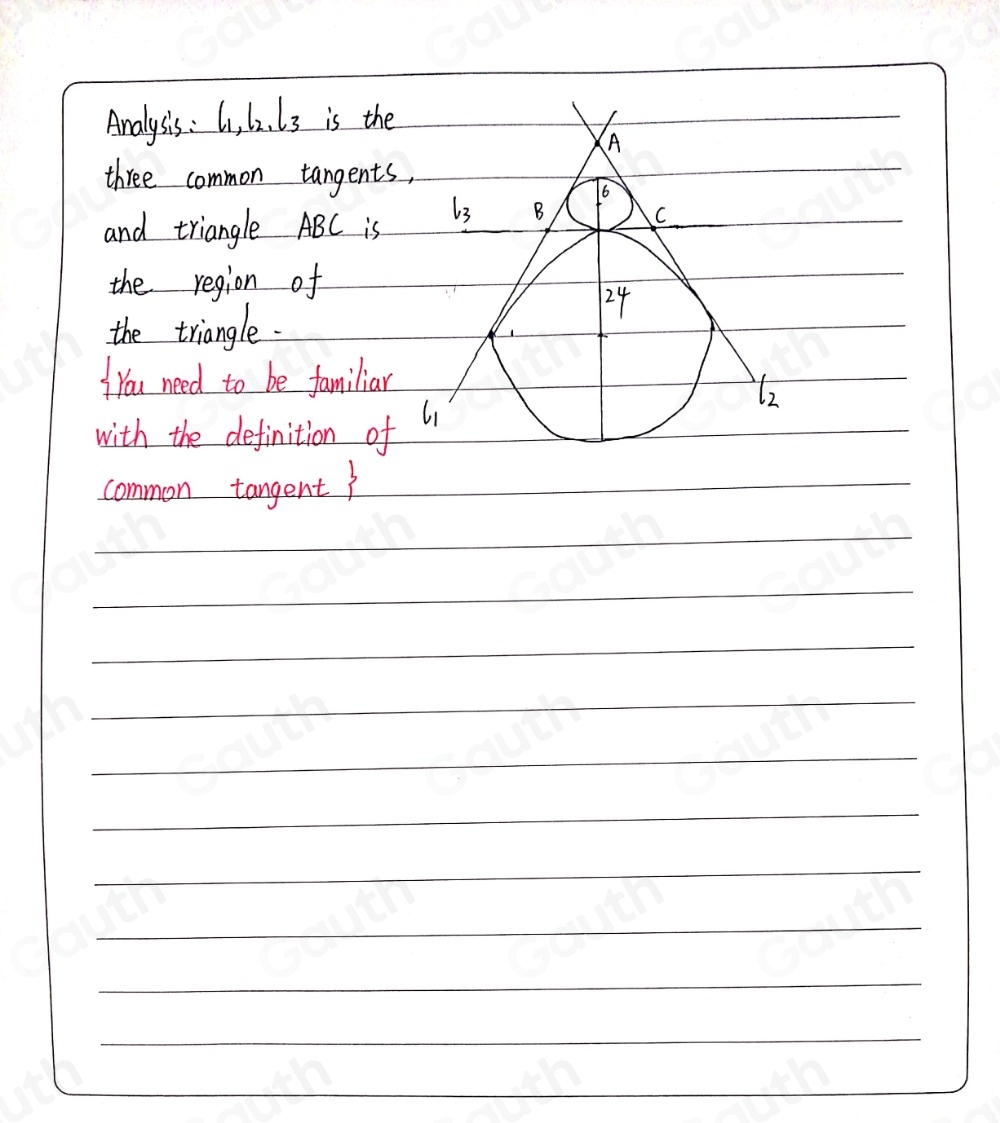 Analysis: l1, l2, l3 is the
three common tangents,
and triangle ABC is
the region of
the triangle -
{You need to be familiar
with the definition of
common tangent}
A
6
l3
B
C
24
l1
l2
Gauth